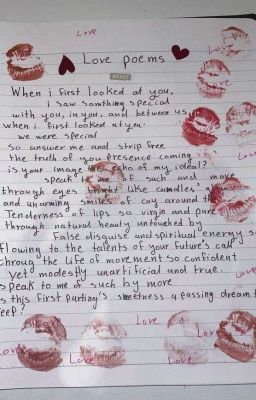 Love
Love poems
READY
Love
When i first looked at you,
i saw somthing special
with you, in you, and between us
when i first looked at you.
we were special
Love
So answer me and strip free
the truth of you presence coming
is your image echo of my ideal?
speak to me of such and more
through eyes bright like candles
and uniorming smiles of cay around the
Love
Tenderness of lips so virgin and pure
through natural beauty untouched by
False disguise and spiritual energy so
Flowing to the talents of your future's call
throug the life of movement so confident
yet modestly unartificial and true.
Love
speak to me of such by more
is this first parting's sweetness a passing dream to
keep?
Love
Love
Love
Love
Love